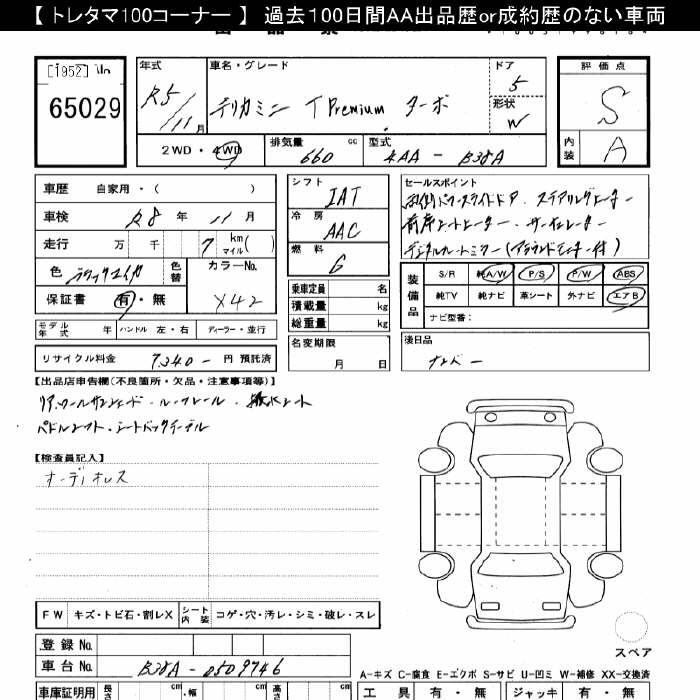 【 トレタマ100コーナー 】 過去100日間AA出品歴or成約歴のない車両
[1952]
65029
年式 R5/11月
車名・グレード デリカミニ T Premium ターボ
ドア 5
形状 W
2WD・4WD
排気量 660 cc
型式 4AA - B38A
評価点 S
内装 A
車歴 自家用・( )
車検 R8年 11月
走行 万 千 7 km マイル( )
色 ブラックマイカ 色替
カラーNo. X42
保証書 有・無
シフト IAT
冷房 AAC
燃料 G
乗車定員 名
積載量 kg
総重量 kg
セールスポイント
両側パワースライドドア ステアリングヒーター
前席シートヒーター サーキュレーター
デジタルルームミラー(アラウンドモニター付)
装備品
S/R 純A/W P/S P/W ABS
純TV 純ナビ 革シート 外ナビ エアB
ナビ型番:
モデル年式 年 ハンドル 左・右 ディーラー・並行
名変期限 月 日
後日品
ナンバー
リサイクル料金 7,340- 円 預託済
【出品店申告欄(不良箇所・欠品・注意事項等)】
リアロールサンシェード・ルーフレール・撥水シート
パドルシフト・シートバックテーブル
【検査員記入】
オーディオレス
FW キズ・トビ石・割レX シート内装 コゲ・穴・汚レ・シミ・破レ・スレ
登録No.
車台No. B38A-0509746
スペア
A-キズ C-腐食 E-エクボ S-サビ U-凹ミ W-補修 XX-交換済
車庫証明用 長さ cm 幅 cm 高さ cm
工具 有・無 ジャッキ 有・無